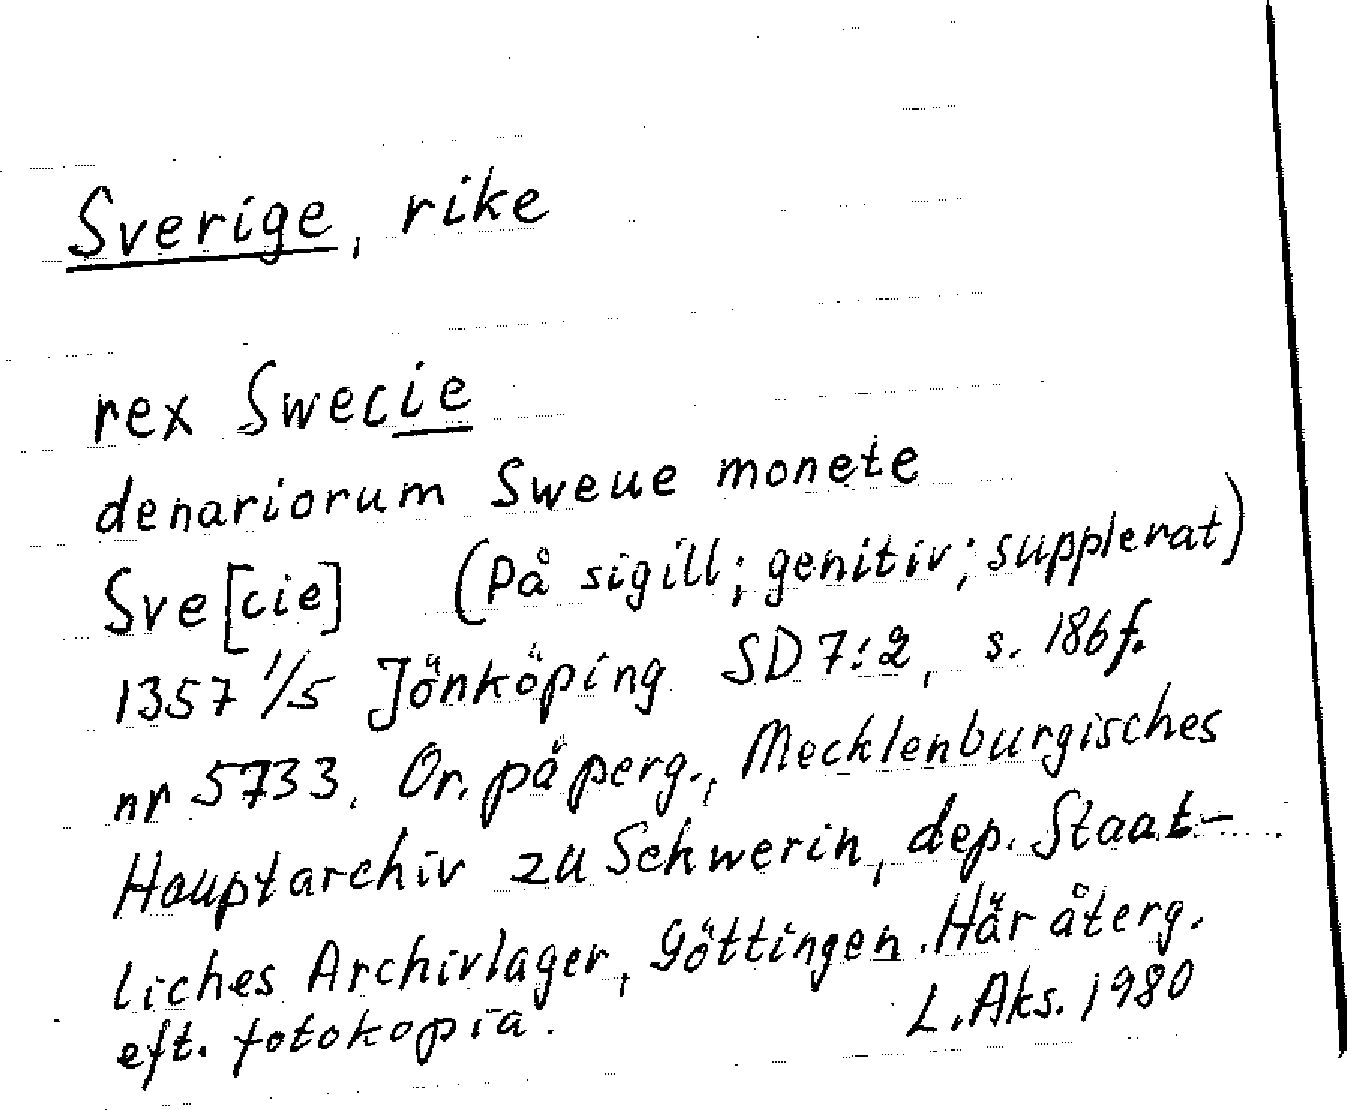 Sverige, rike
rex Swecie
denariorum Sweue monete
Sve[cie] (på sigill; genitiv; supplerat)
1357 1/5 Jönköping SD 7:2, s. 186 f.
nr 5733. Or. på perg., Mecklenburgisches
Hauptarchiv zu Schwerin, dep. Staat-
liches Archivlager, Göttingen. Här återg.
eft. fotokopia. L. Aks. 1980